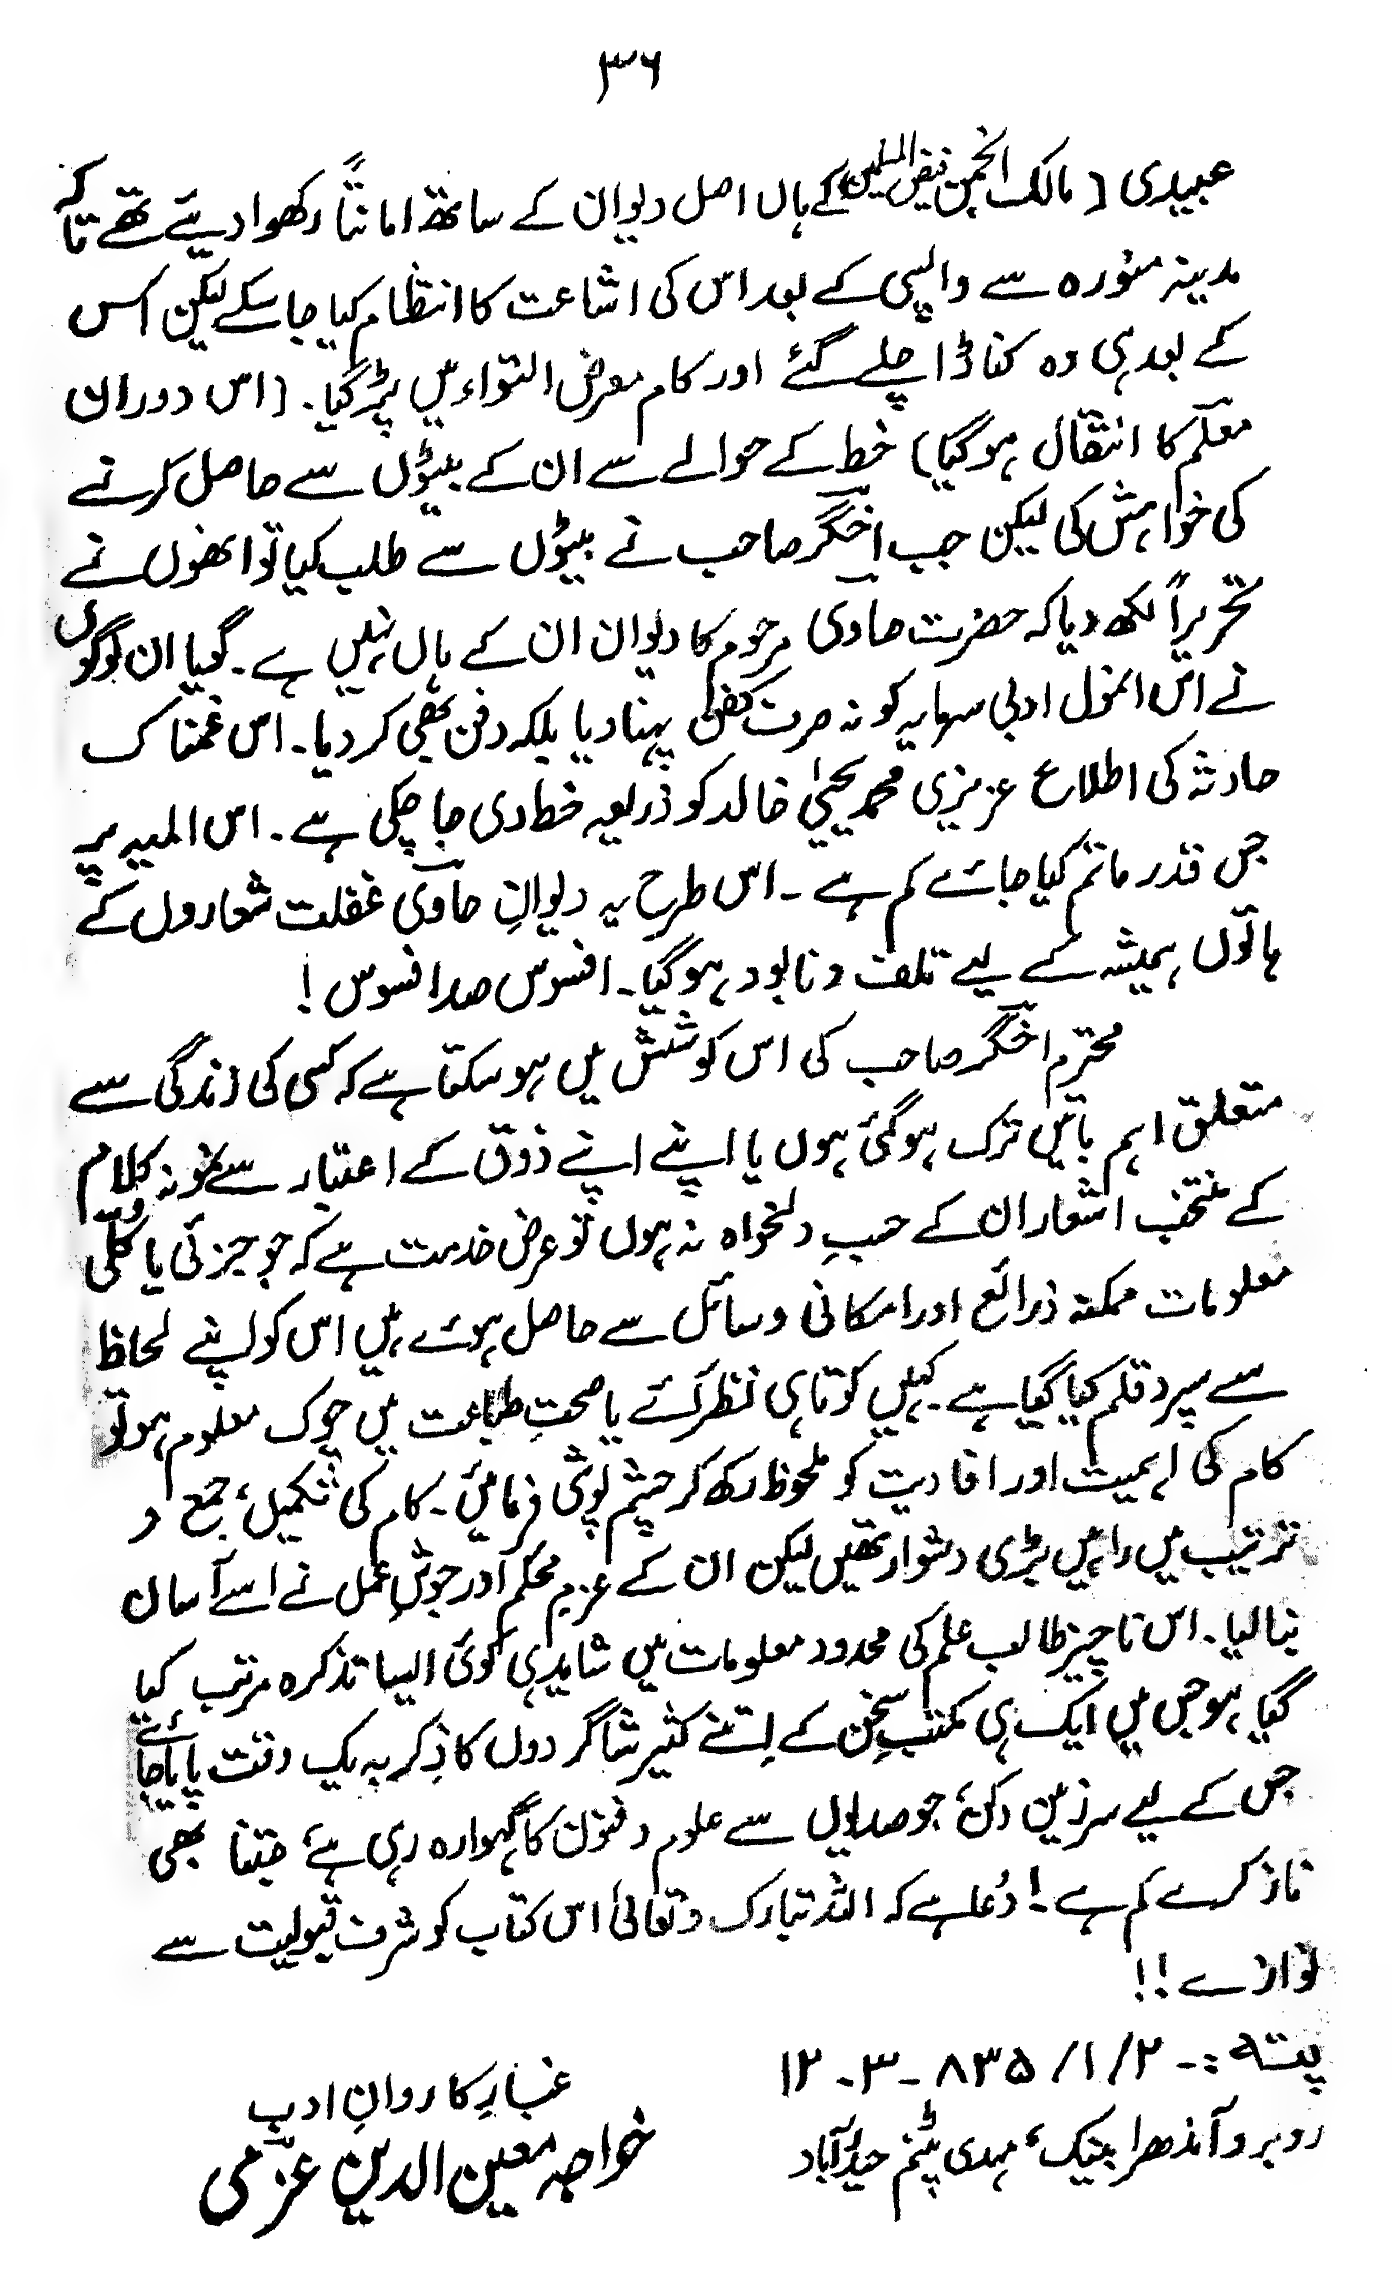 ۳۶
عبیدی (مالک انجمن فیض المسلمین) کے ہاں اصل دیوان کے ساتھ امانتاً رکھوا دیئے تھے تاکہ
مدینہ منورہ سے واپسی کے بعد اس کی اشاعت کا انتظام کیا جا سکے لیکن اس
کے بعد ہی وہ کناڈا چلے گئے اور کام معرض التواء میں پڑ گیا۔ (اس دوران
معلم کا انتقال ہو گیا) خط کے حوالے سے ان کے بیٹوں سے حاصل کرنے
کی خواہش کی لیکن جب اخگر صاحب نے بیٹوں سے طلب کیا تو انھوں نے
تحریراً لکھ دیا کہ حضرت حاوی مرحوم کا دیوان ان کے ہاں نہیں ہے۔ گویا ان لوگوں
نے اس انمول ادبی سرمایہ کو نہ صرف کفن پہنا دیا بلکہ دفن بھی کر دیا۔ اس غمناک
حادثہ کی اطلاع عزیزی محمد یحییٰ خالد کو ذریعہ خط دی جا چکی ہے۔ اس المیہ پر
جس قدر ماتم کیا جائے کم ہے۔ اس طرح یہ دیوانِ حاوی غفلت شعاروں کے
ہاتوں ہمیشہ کے لیے تلف و نابود ہو گیا۔ افسوس صد افسوس!
محترم اخگر صاحب کی اس کوشش میں ہو سکتا ہے کہ کسی کی زندگی سے
متعلق اہم باتیں ترک ہو گئی ہوں یا اپنے اپنے ذوق کے اعتبار سے نمونہ کلام
کے منتخب اشعار ان کے حسبِ دلخواہ نہ ہوں تو عرض خدمت ہے کہ جو جزئی یا کلّی
معلومات ممکنہ ذرائع اور امکانی وسائل سے حاصل ہوئے ہیں اس کو اپنے لحاظ
سے سپرد قلم کیا گیا ہے۔ کہیں کوتاہی نظر آئے یا صحتِ طباعت میں چوک معلوم ہو تو
کام کی اہمیت اور افادیت کو ملحوظ رکھ کر چشم پوشی فرمائیں۔ کام کی تکمیل، جمع و
ترتیب میں راہیں بڑی دشوار تھیں لیکن ان کے عزمِ محکم اور جوشِ عمل نے اسے آسان
بنا لیا۔ اس ناچیز طالب علم کی محدود معلومات میں شاید ہی کوئی ایسا تذکرہ مرتب کیا
گیا ہو جس میں ایک ہی مکتبِ سخن کے اتنے کثیر شاگردوں کا ذِکر بہ یک وقت پایا جائے
جس کے لیے سرزمین دکن، جو صدیوں سے علوم و فنون کا گہوارہ رہی ہے، جتنا بھی
ناز کرے کم ہے! دُعا ہے کہ اللہ تبارک و تعالیٰ اس کتاب کو شرف قبولیت سے
نوازے!!
پتہ :- ۱۲-۳-۸۳۵/۱/۲
روبرو آندھرا بینک، مہدی پٹنم حیدرآباد
غبارِ کاروانِ ادب
خواجہ معین الدین عزمی